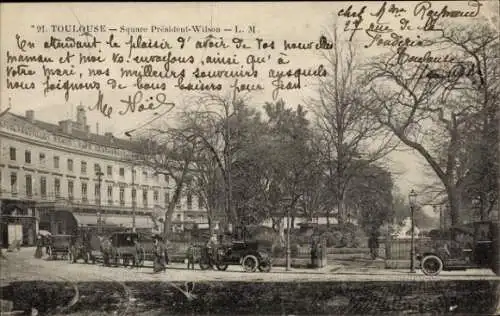 21. TOULOUSE - Square Président-Wilson - L. M.
chez Mme Raymond
27 rue de la
Pouderie
Toulouse
En attendant le plaisir d'avoir de vos nouvelles
maman et moi vous envoyons, ainsi qu'à
votre Mari, nos meilleurs souvenirs auxquels
nous joignons de bons baisers pour Jean.
Me Noël